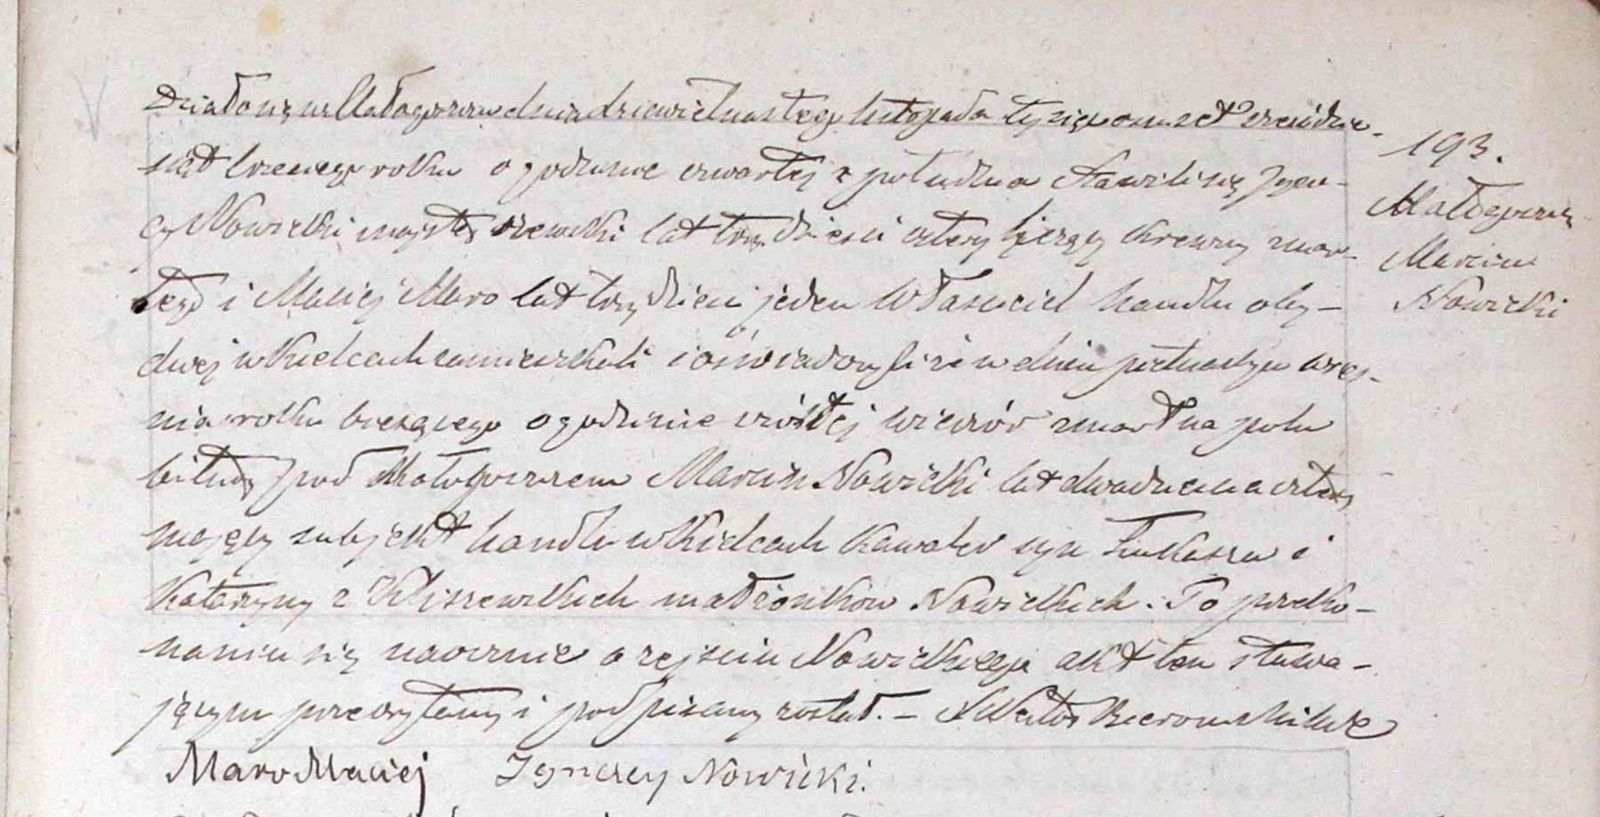 Działo się w Małogoszczu dnia dziewietnastego listopada tysiąc osmset sześćdzie-
siąt trzeciego roku o godzinie czwartej z południa Stawili się Igna-
cy Nowicki majster szewcki lat trzydzieści cztery liczący krewny zmar-
łego i Maciej Maro lat trzydzieści jeden Własciciel handlu oby-
dwej w Kielcach zamieszkali i oświadczyli iż w dniu pietnastym wrzes-
nia roku bieżącego o godzinie szóstej wieczór zmarł na polu
bitwy pod Małogoszczem Marcin Nowicki lat dwadzieścia cztery
mający subjekt handlu w Kielcach kawaler syn Łukasza i
Katarzyny z Kliszewskich małżonków Nowickich. Po przeko-
naniu się naocznie o zejściu Nowickiego akt ten stawa-
jącym przeczytany i podpisany został. –
Maro Maciej Ignacy Nowicki.
193.
Małogoszcz
Marcin
Nowicki